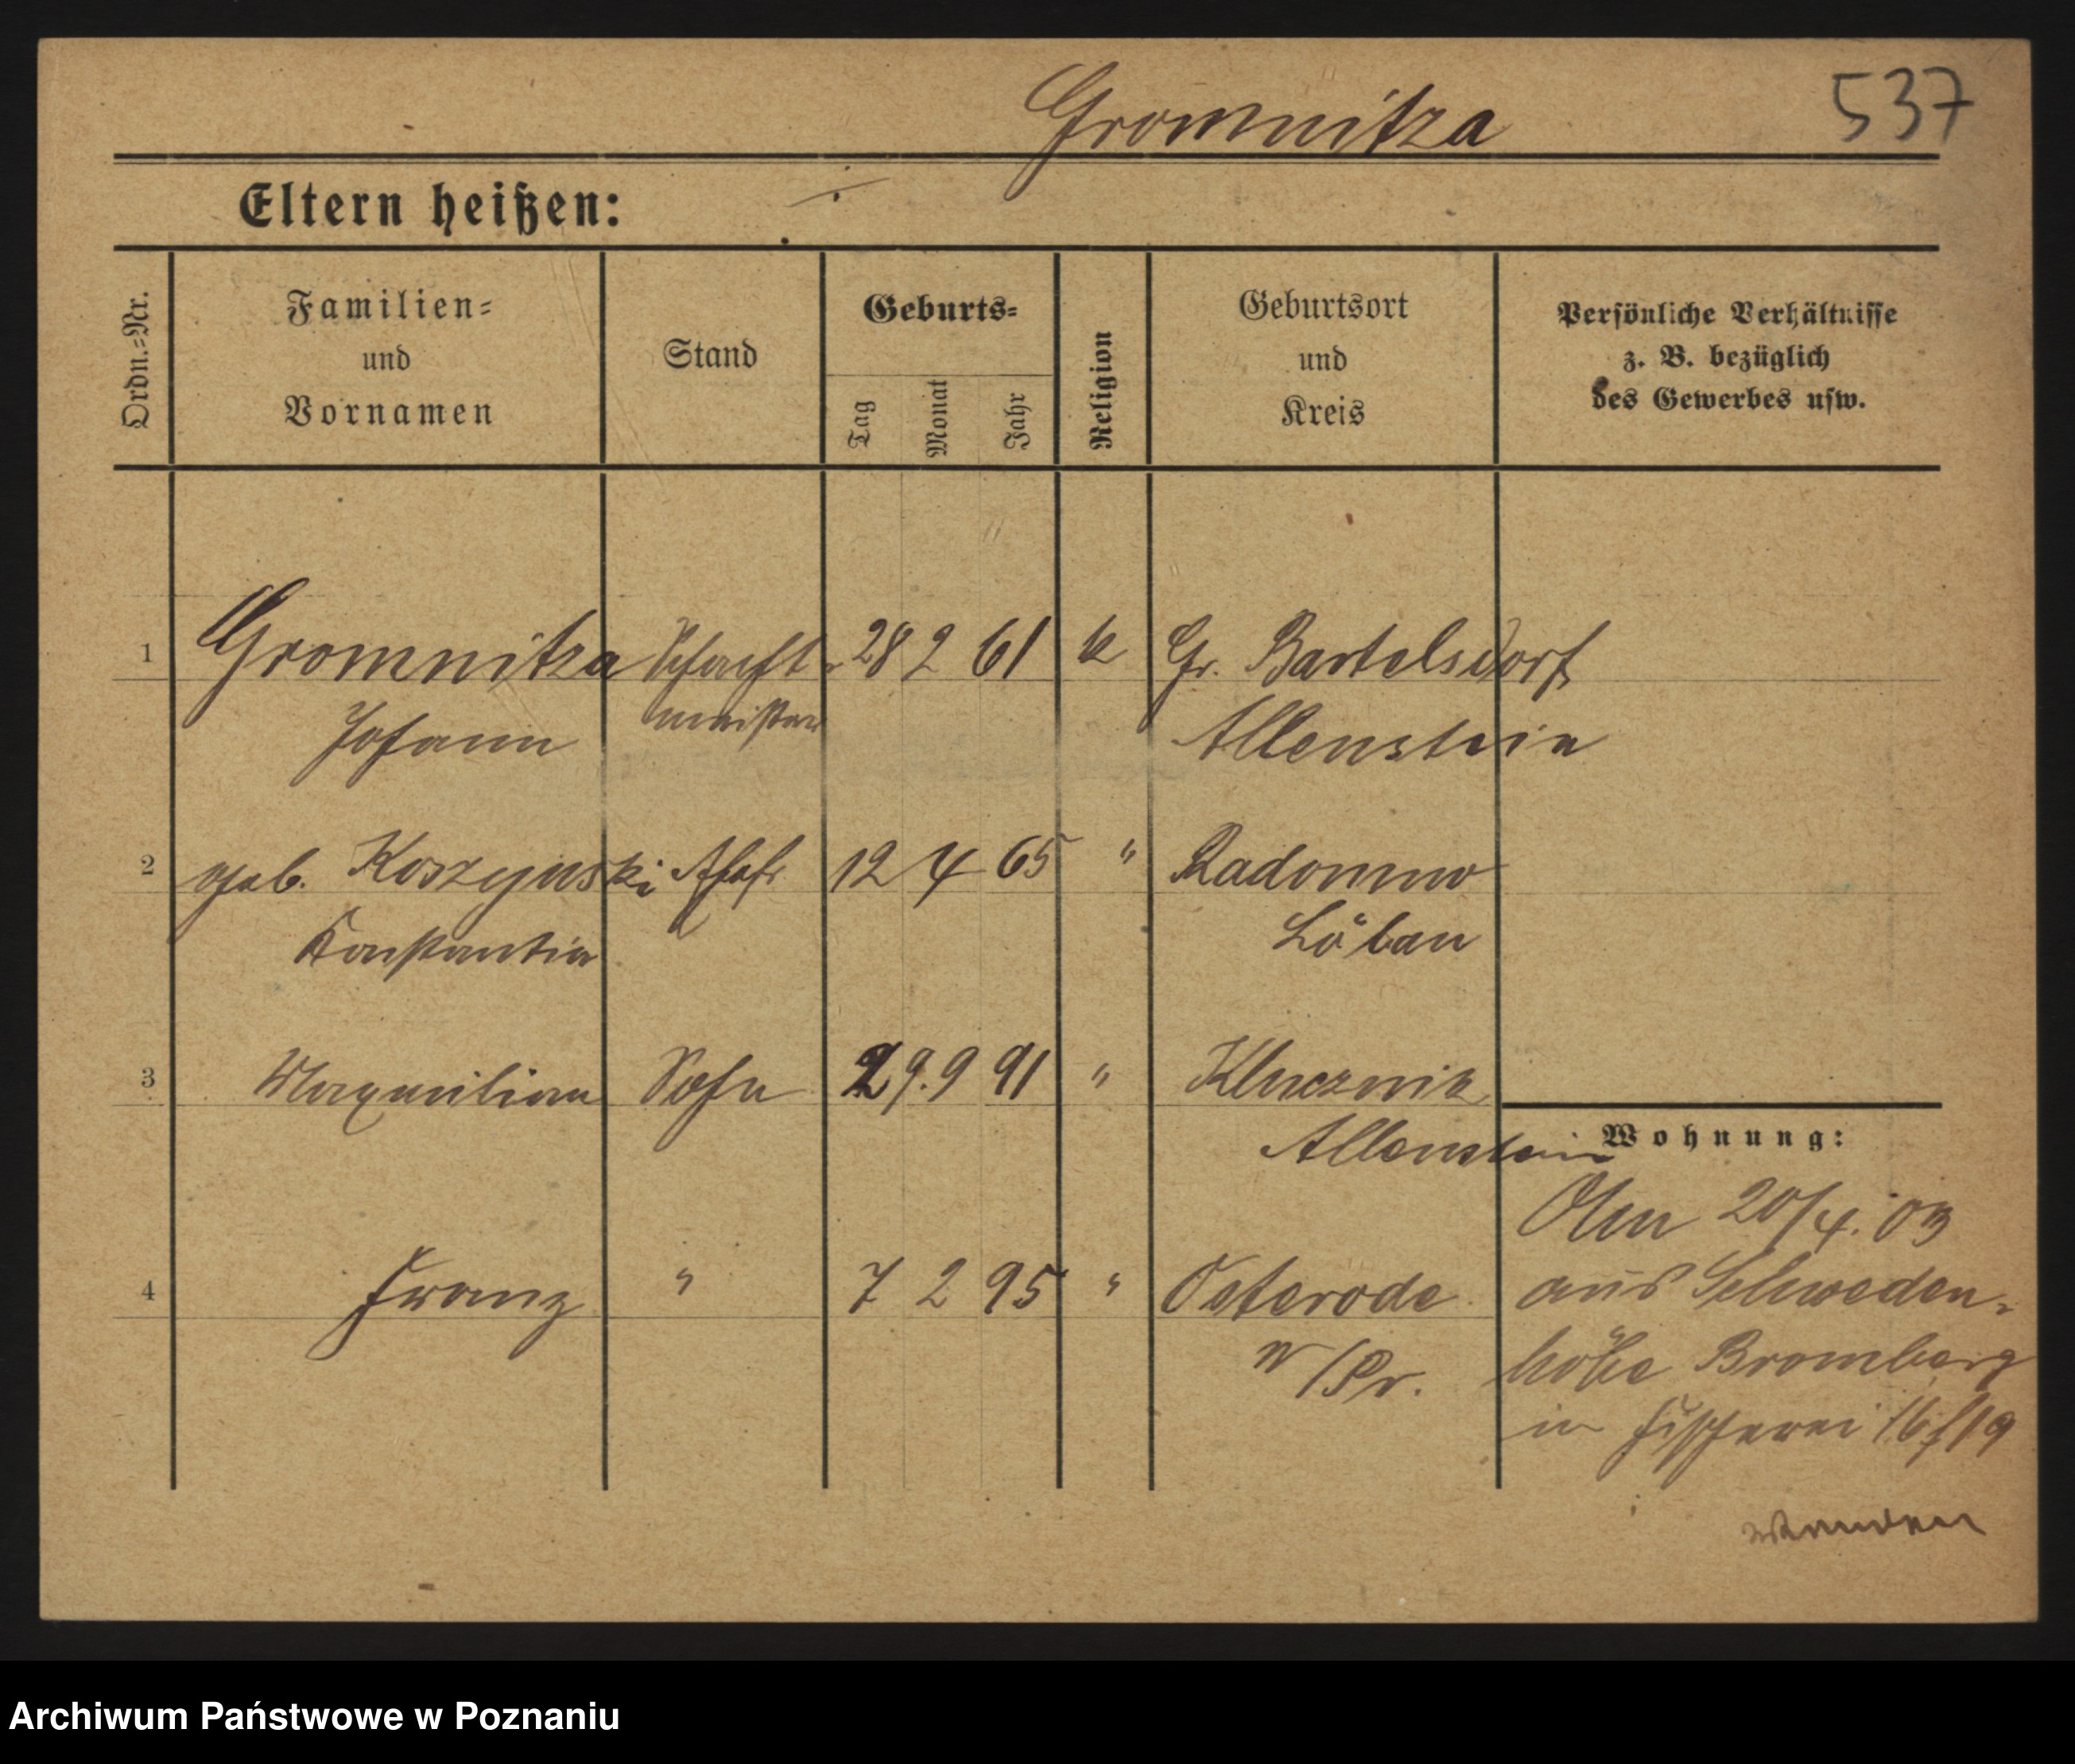 Gromnitza
537
Eltern heißen:
Ordn.=Nr.
Familien=
und
Vornamen
Stand
Geburts=
Tag
Monat
Jahr
Religion
Geburtsort
und
Kreis
Persönliche Verhältnisse
z. B. bezüglich
des Gewerbes usw.
1 Gromnitza Schacht- 28 2 61 k Gr. Bartelsdorf
Johann meister Allenstein
2 geb. Koszynski Ehefr 12 4 65 " Radomno
Konstantia Löbau
3 Maxmilian Sohn 29. 9 91 " Klucznik
Allenstein
Wohnung:
4 Franz " 7 2 95 " Osterode
/Pr.
20/4. 03
aus Schweden-
höhe Bromberg
in Fischerei 16/19
wenden
Archiwum Państwowe w Poznaniu